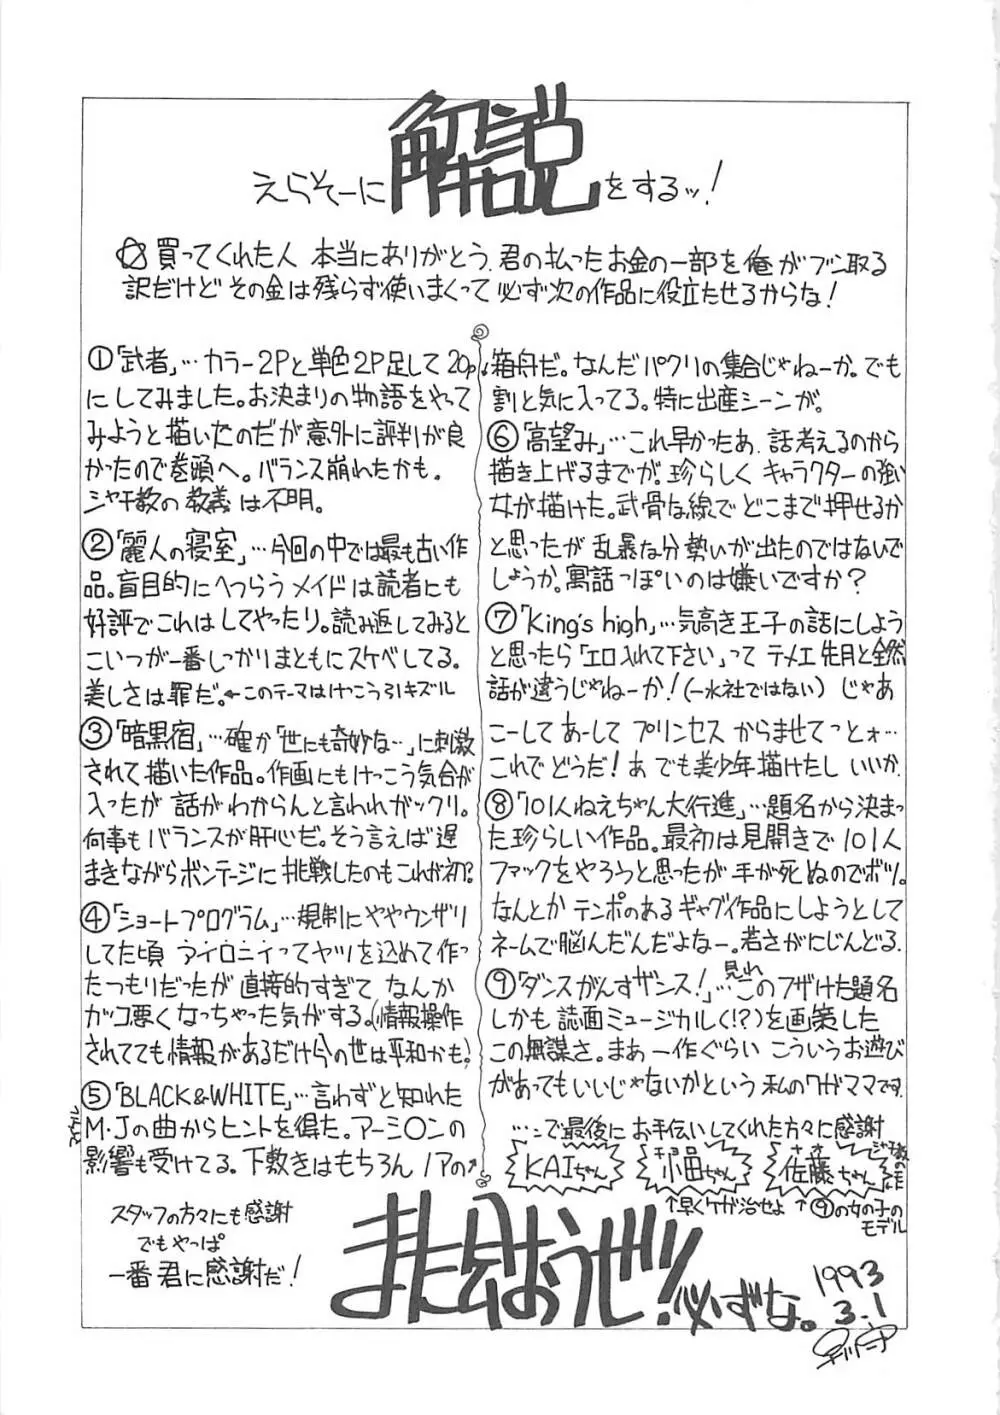 えらそーに解説をするッ!
☆買ってくれた人 本当にありがとう. 君の払ったお金の一部を俺がブン取る
訳だけど その金は残らず使いまくって 必ず次の作品に役立たせるからな!
①「武者」…カラー2Pと単色2P足して20p
にしてみました。お決まりの物語をやって
みようと描いたのだが意外に評判が良
かったので巻頭へ。バランス崩れたかも。
シャチ教の教義は不明。
②「麗人の寝室」…今回の中では最も古い作
品。盲目的にへつらうメイドは読者にも
好評でこれはしてやったり。読み返してみると
こいつが一番しっかりまともにスケベしてる。
美しさは罪だ。←このテーマはけっこう引キズル
③「暗黒宿」…確か「世にも奇妙な…」に刺激
されて描いた作品。作画にもけっこう気合が
入ったが 話がわからんと言われガックリ。
何事もバランスが肝心だ。そう言えば遅
まきながらボンテージに挑戦したのもこれが初?
④「ショートプログラム」…規制にややウンザリ
してた頃 アイロニイってヤツを込めて作っ
たつもりだったが 直接的すぎて なんか
カッコ悪くなっちゃった気がする。(情報操作
されてても情報があるだけ今の世は平和かも)
⑤「BLACK&WHITE」…言わずと知れた
M・Jの曲からヒントを得た。アーミ〇ンの
影響も受けてる。下敷きはもちろんノアの
箱舟だ。なんだパクリの集合じゃねーか。でも
割と気に入ってる。特に出産シーンが。
⑥「高望み」…これ早かったあ. 話考えるのから
描き上げるまでが. 珍らしく キャラクターの強い
女が描けた。武骨な線で どこまで押せるか
と思ったが 乱暴な分 勢いが出たのではないで
しょうか。寓話っぽいのは嫌いですか?
⑦「King's high」…気高き王子の話にしよう
と思ったら「エロ入れて下さい」って テメエ 先月と全然
話が違うじゃねーか!(一水社ではない) じゃあ
こーして あーして プリンセス からませて っとォ…
これで どうだ! あ でも美少年描けたし いいか.
⑧「101人ねえちゃん大行進」…題名から決まっ
た珍らしい作品。最初は見開きで101人
ファックをやろうと思ったが 手が死ぬのでボツ。
なんとか テンポのあるギャグ作品にしようとして
ネームで脳んだんだよなー。若さがにじんどる.
⑨「ダンスがんすザンス!」…見れ このフザけた題名
しかも 誌面ミュージカル(!?)を画策した
この無謀さ。まあ 一作ぐらい こういうお遊び
があってもいいじゃないかという 私のワガママです.
…で最後に お手伝いしてくれた方々に感謝
KAIちゃん
ちゃん
佐藤ちゃん
↑早くケガ治せよ
↑⑨の女の子の
モデル
スタッフの方々にも感謝
でもやっぱ
一番 君に感謝だ!
また会おうぜ!! 必ずな。
1993
3.1